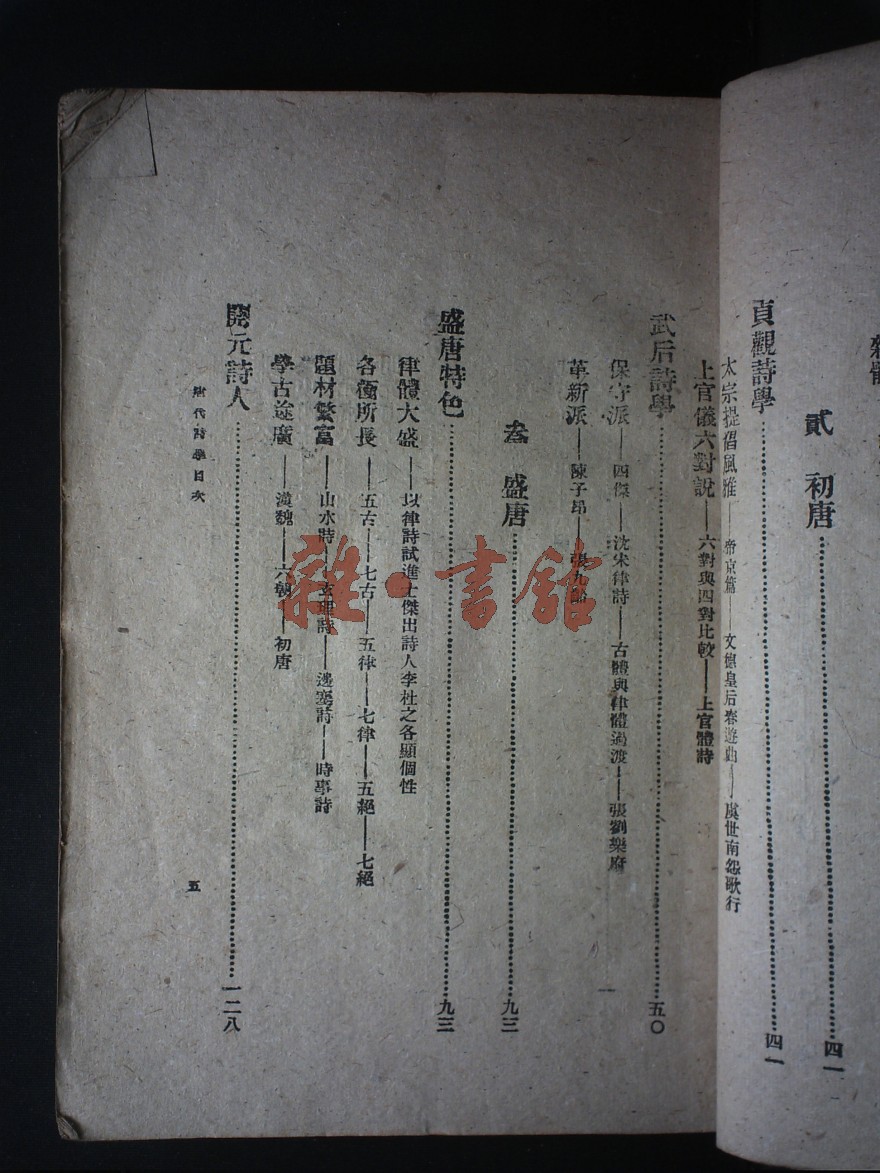 雜體
貳 初唐……四一
貞觀詩學……四一
太宗提倡風雅——帝京篇——文德皇后春遊曲——虞世南怨歌行
上官儀六對說——六對與四對比較——上官體詩
武后詩學……五〇
保守派——四傑——沈宋律詩——古體與律體過渡——張劉樂府
革新派——陳子昂——張九齡
叁 盛唐……九三
盛唐特色……九三
律體大盛——以律詩試進士傑出詩人李杜之各顯個性
各衝所長——五古——七古——五律——七律——五絕——七絕
題材繁富——山水詩——玄理詩——邊塞詩——時事詩
學古途廣——漢魏——六朝——初唐
開元詩人……一二八
唐代詩學目次
五
雜·書館